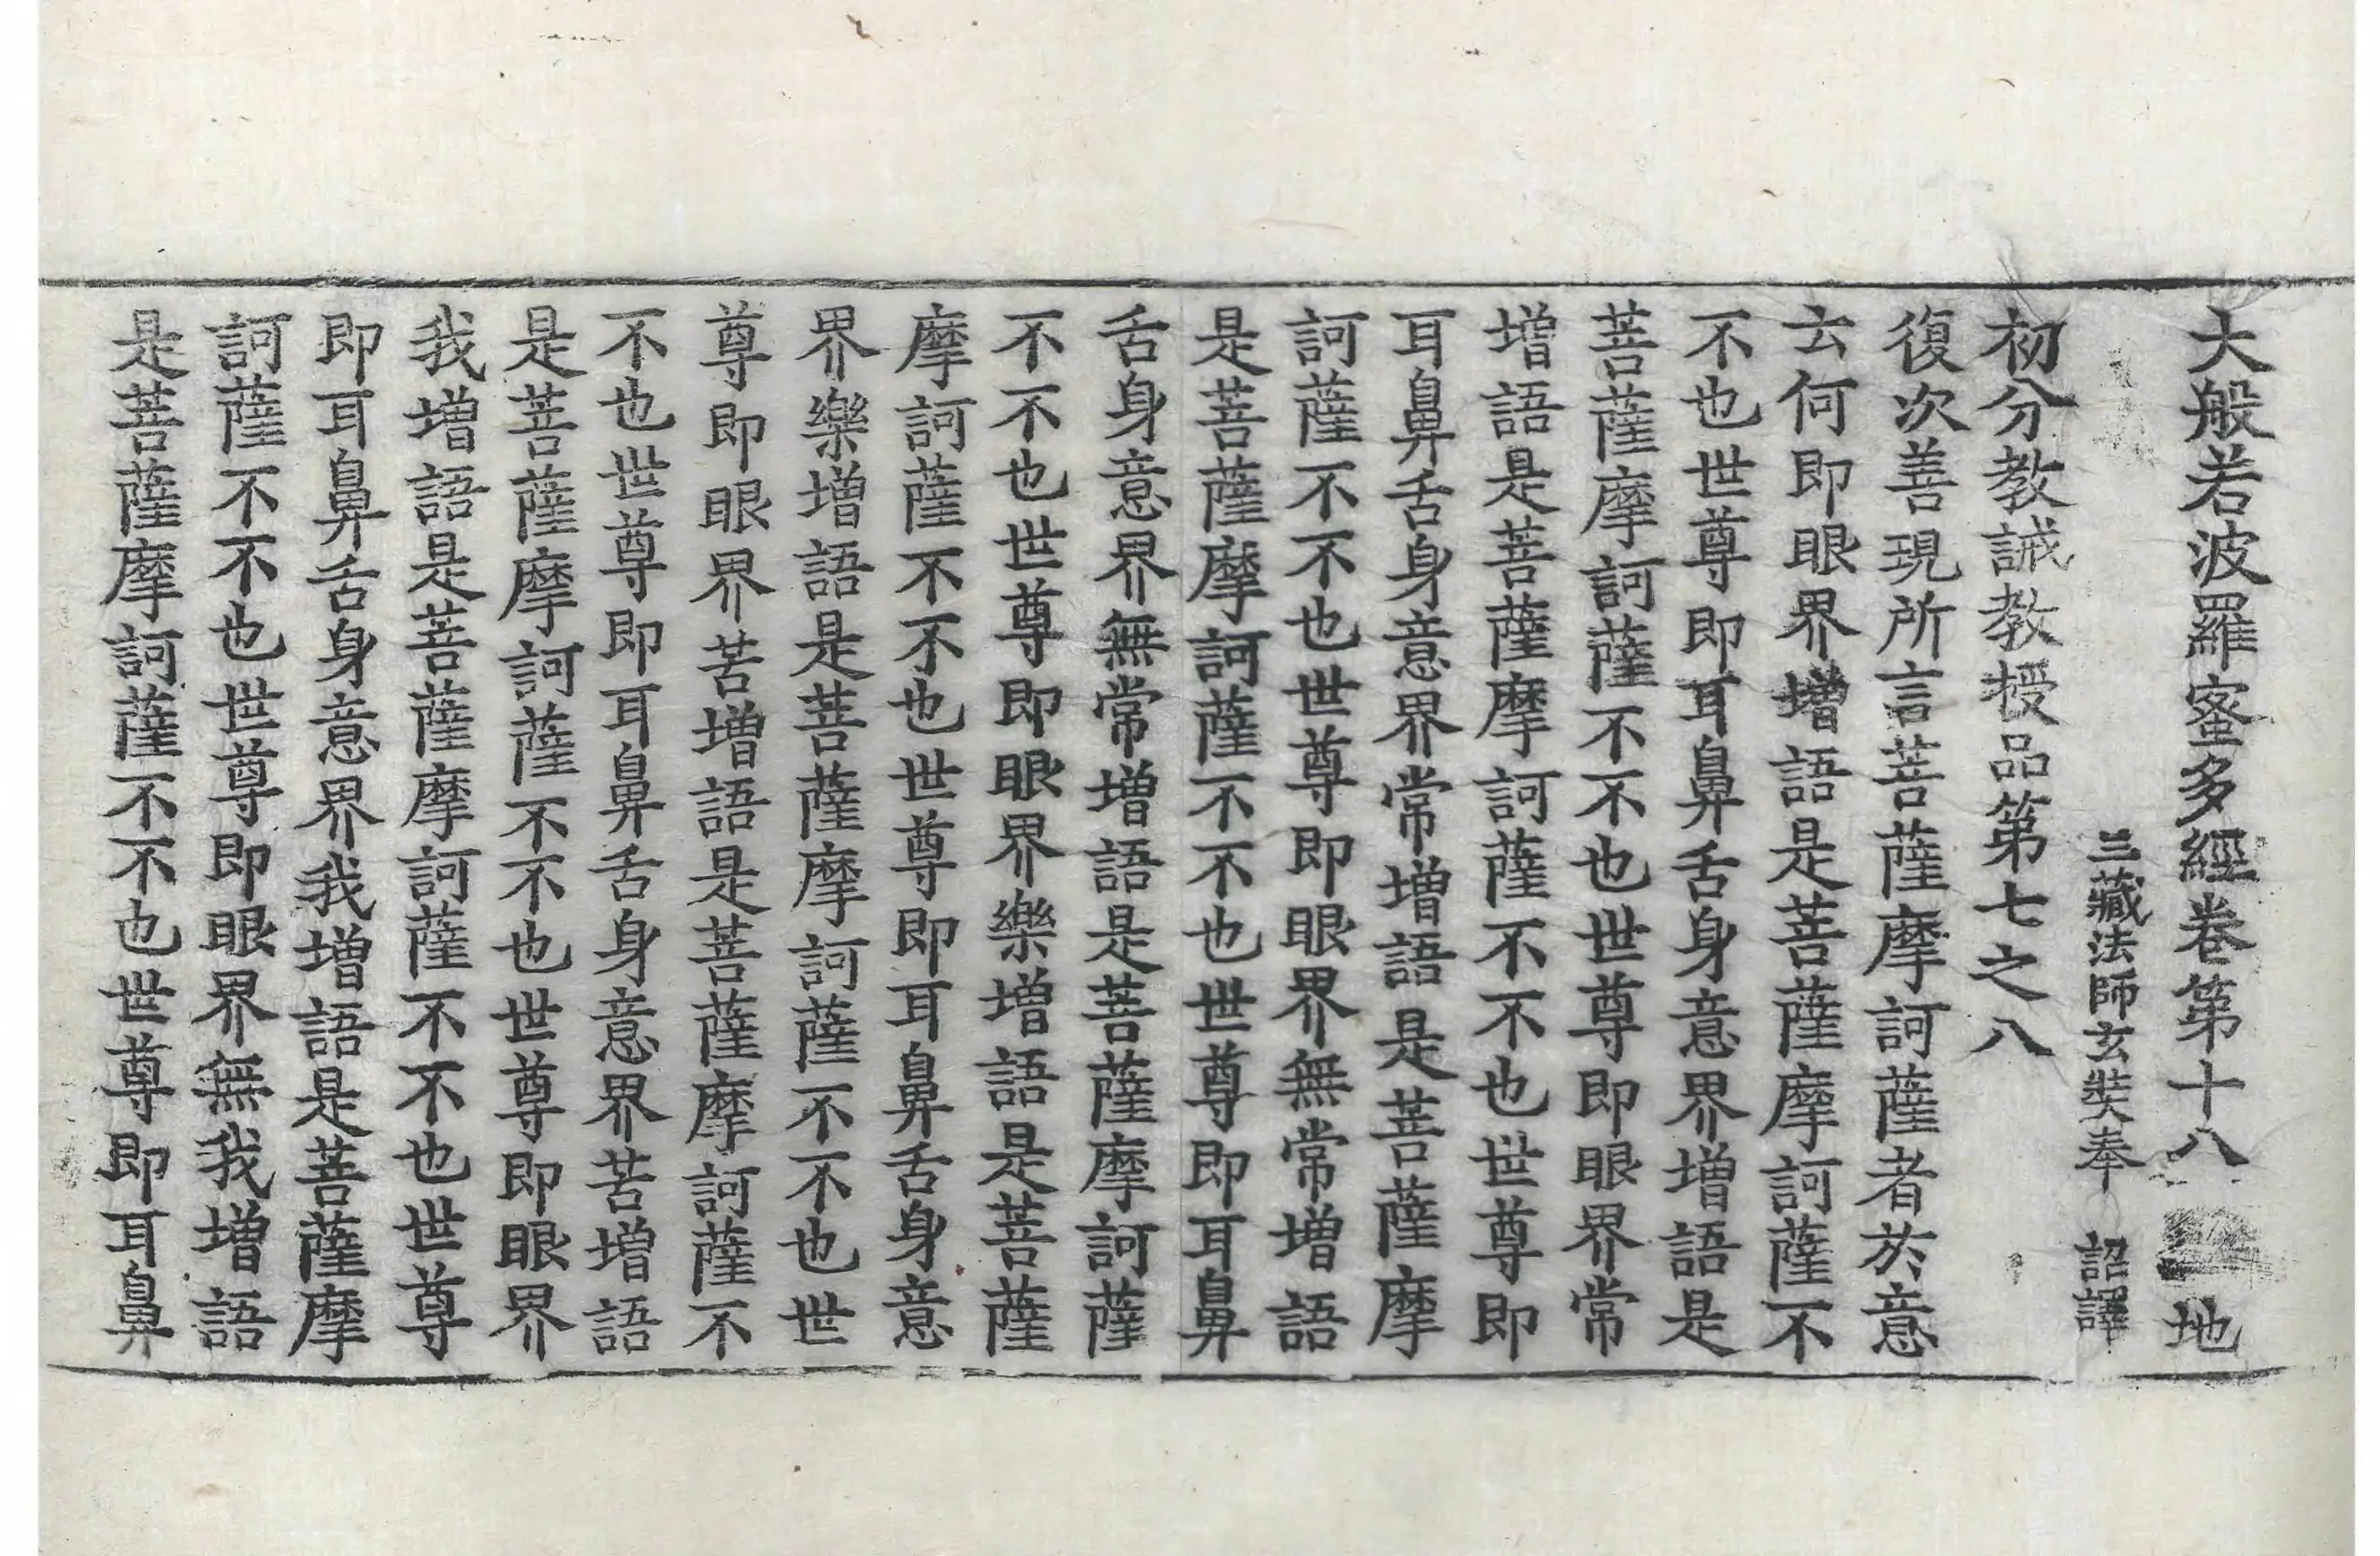 大般若波羅蜜多經卷第十八 地
三藏法師玄奘奉 詔譯
初分教誡教授品第七之八
復次善現所言菩薩摩訶薩者於意
云何即眼界增語是菩薩摩訶薩不
不也世尊即耳鼻舌身意界增語是
菩薩摩訶薩不不也世尊即眼界常
增語是菩薩摩訶薩不不也世尊即
耳鼻舌身意界常增語是菩薩摩
訶薩不不也世尊即眼界無常增語
是菩薩摩訶薩不不也世尊即耳鼻
舌身意界無常增語是菩薩摩訶薩
不不也世尊即眼界樂增語是菩薩
摩訶薩不不也世尊即耳鼻舌身意
界樂增語是菩薩摩訶薩不不也世
尊即眼界苦增語是菩薩摩訶薩不
不也世尊即耳鼻舌身意界苦增語
是菩薩摩訶薩不不也世尊即眼界
我增語是菩薩摩訶薩不不也世尊
即耳鼻舌身意界我增語是菩薩摩
訶薩不不也世尊即眼界無我增語
是菩薩摩訶薩不不也世尊即耳鼻